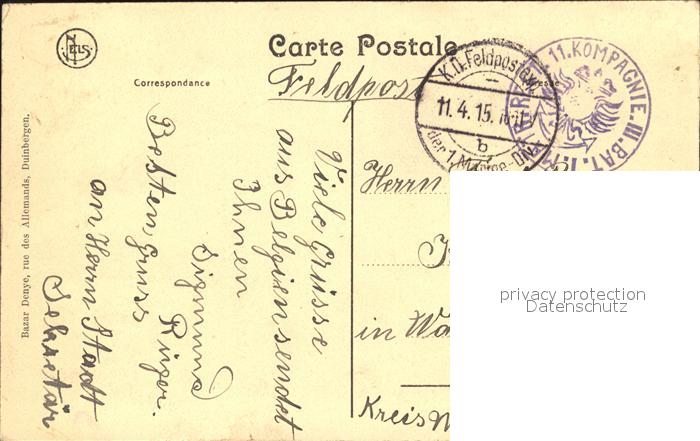 NELS
Carte Postale
Correspondance
Adresse
Feldpost
K.D. Feldpostexp.
11.4.15.
b
der 1. Marine-Div.
11. KOMPAGNIE. III. BAT. I.
Herrn
in Wa
Kreis
privacy protection
Datenschutz
Viele Grüsse
aus Belgien sendet
Ihnen
Sigmund
Rüger.
Besten Gruss
an Herrn Stadt
Sekretär
Bazar Denye, rue des Allemands, Duinbergen.